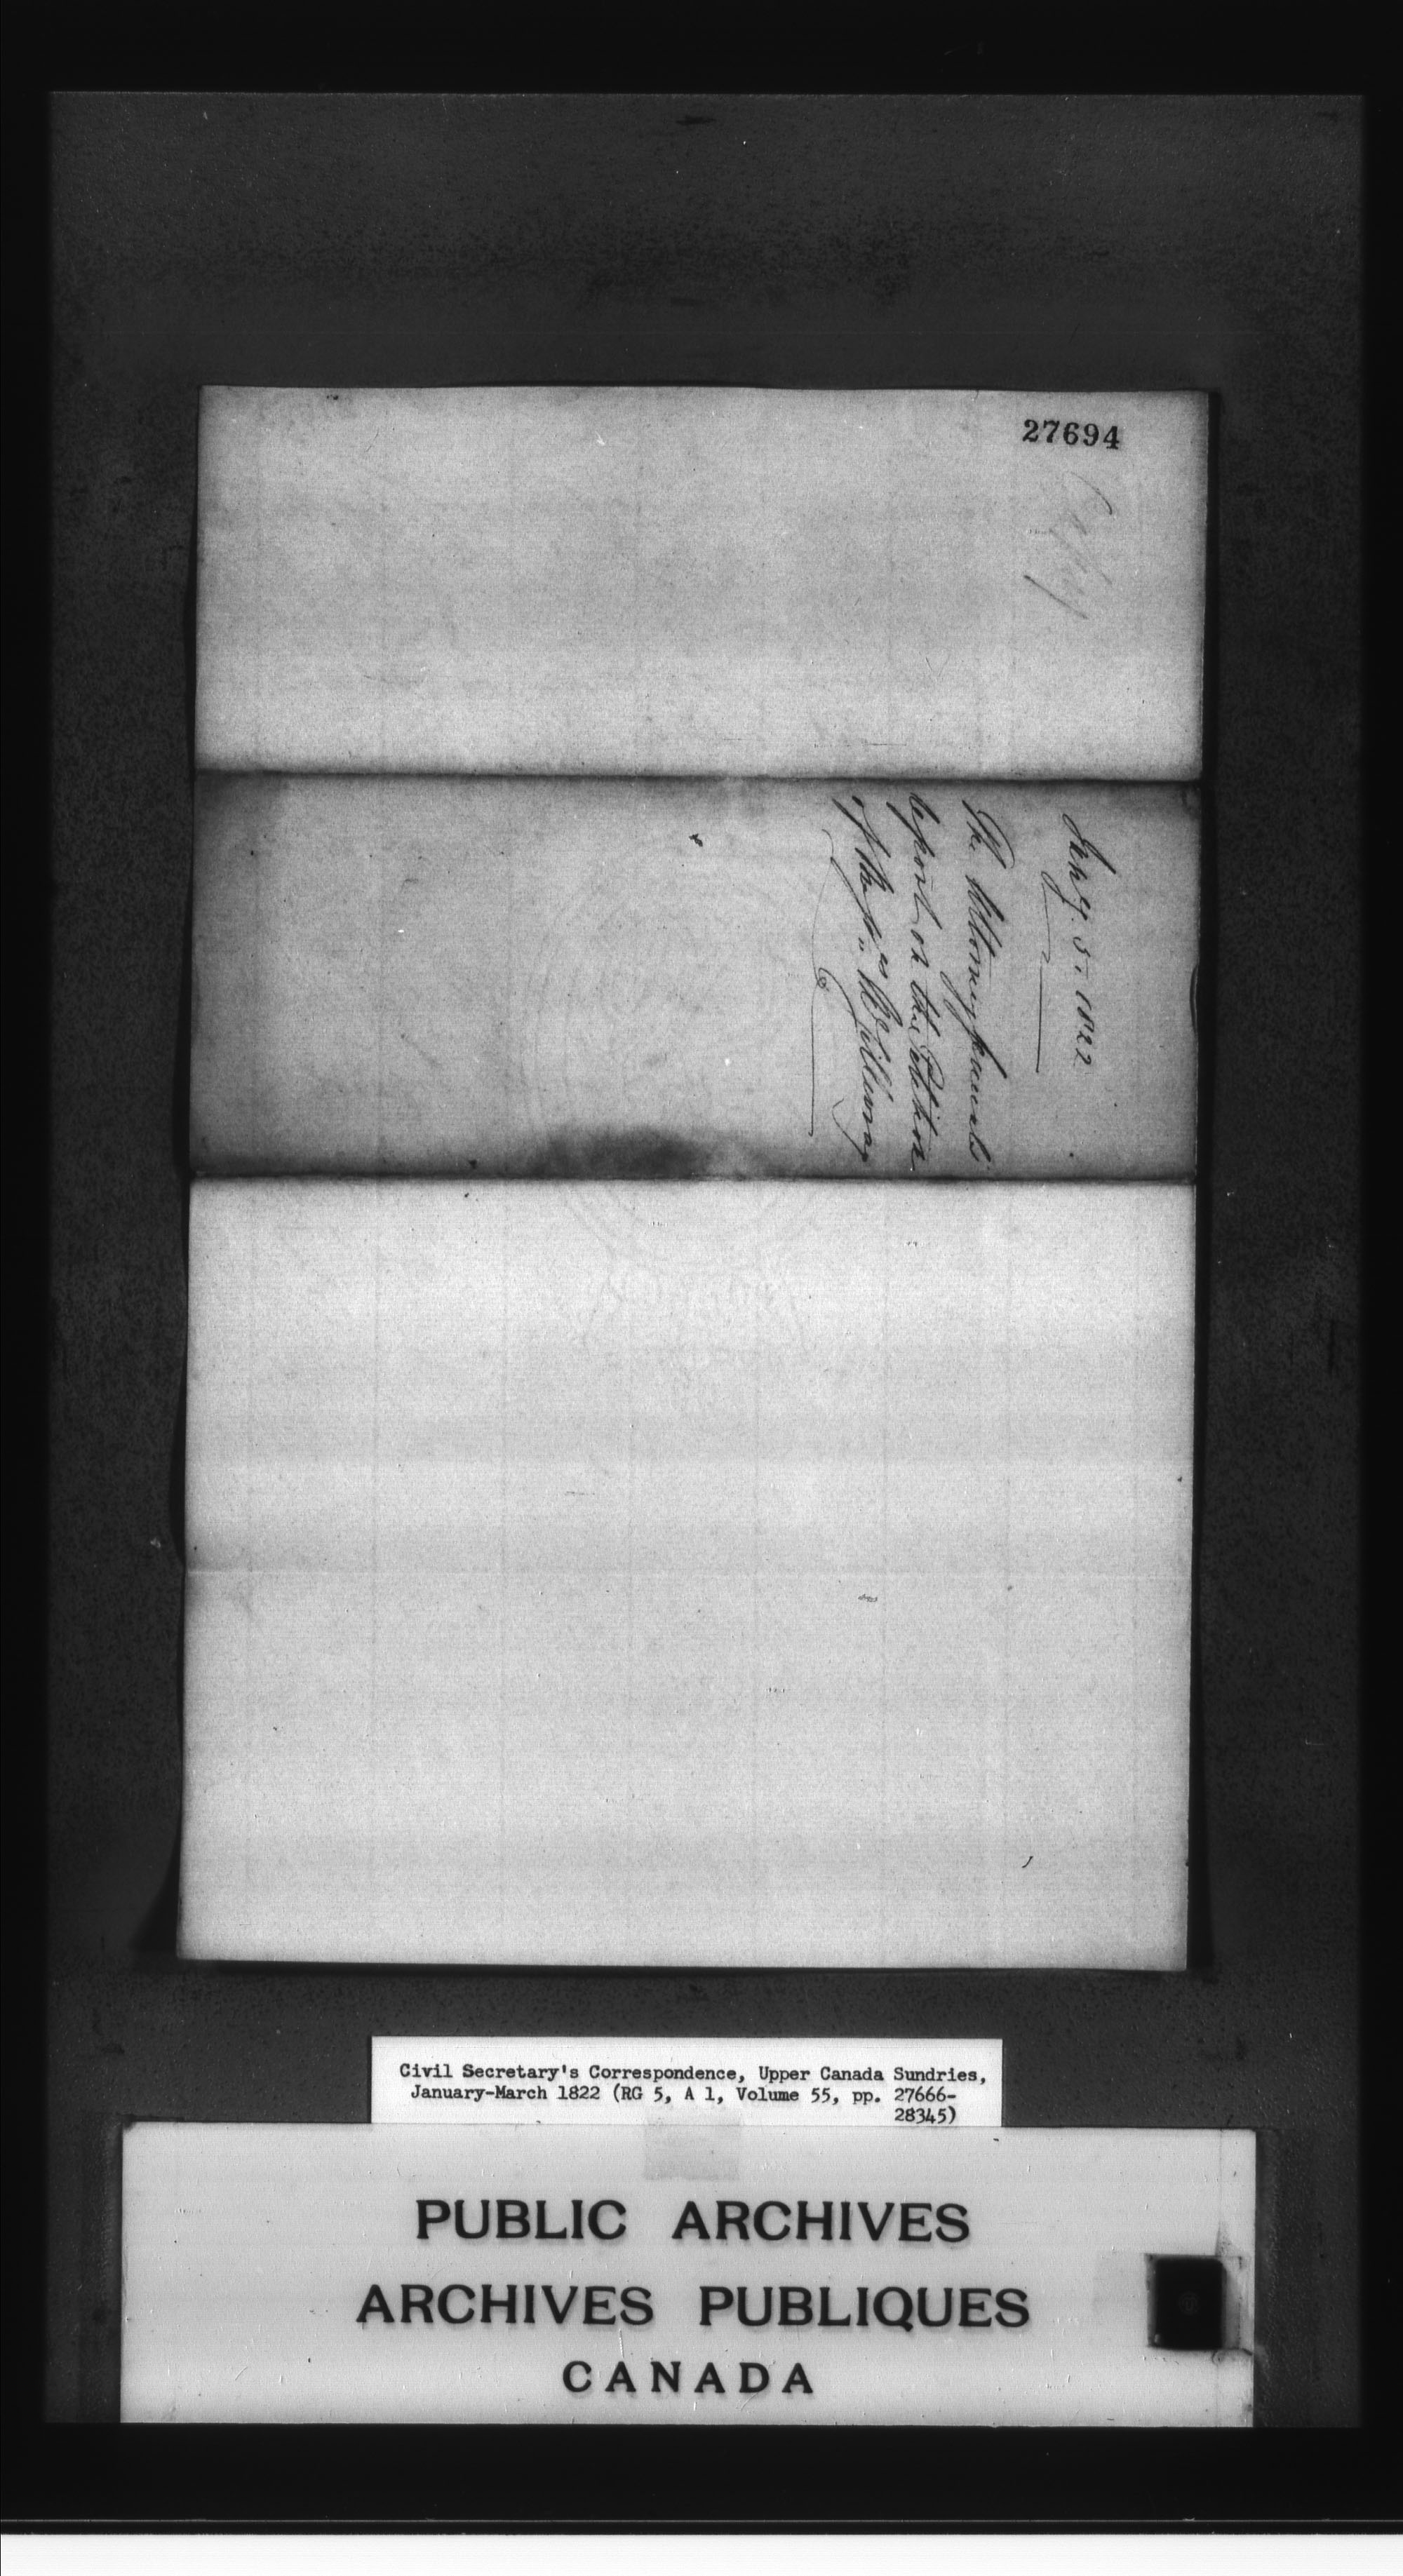 27694
Copy
Jany. 5. 1822
The Attorney General's
report on the Petition
of
Civil Secretary's Correspondence, Upper Canada Sundries,
January-March 1822 (RG 5, A 1, Volume 55, pp. 27666-
28345)
PUBLIC ARCHIVES
ARCHIVES PUBLIQUES
CANADA